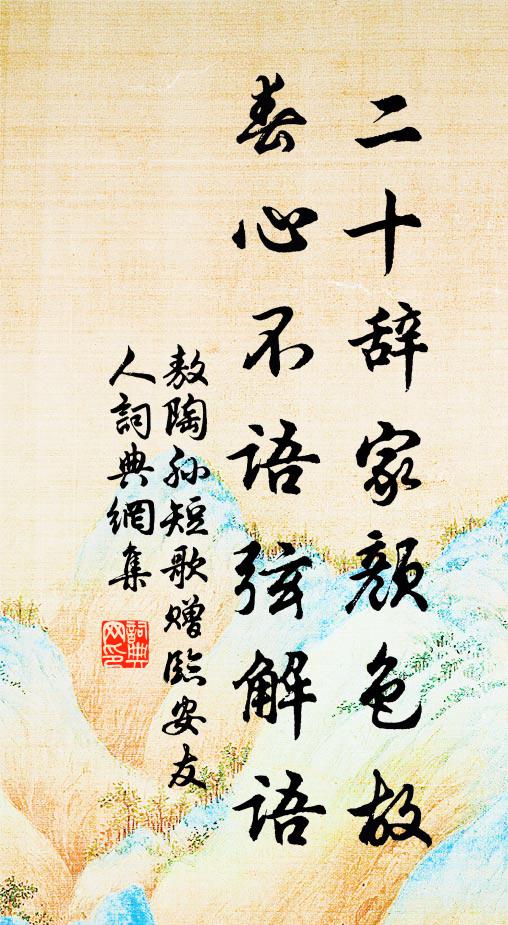 二十辞家颜色故
春心不语弦解语
敖陶孙短歌赠临安友
人詞典網集
詞典